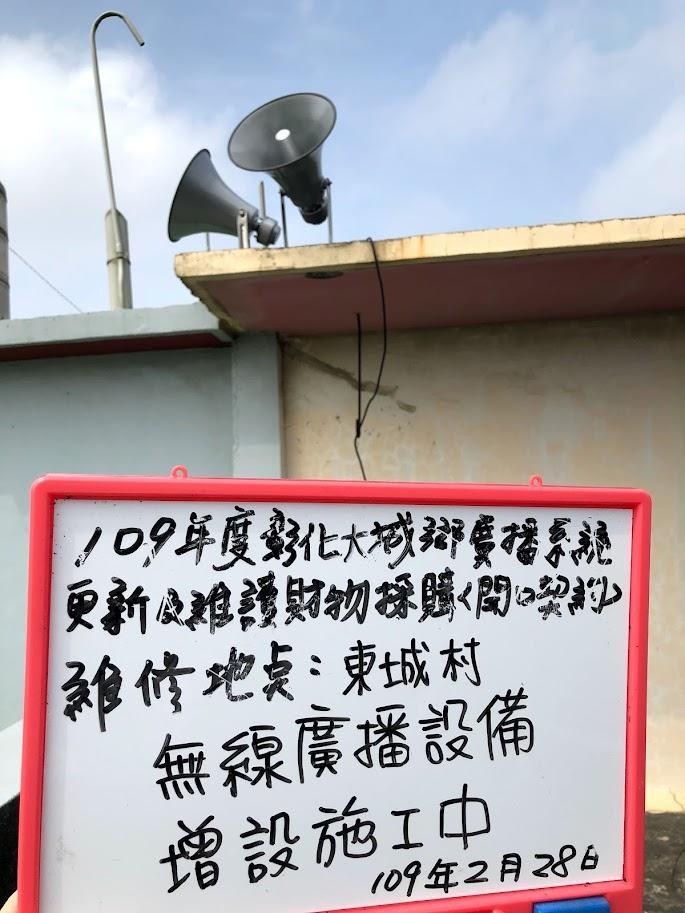 109年度彰化大城鄉廣播系統
更新及維護財物採購<開口契約>
維修地点:東城村
無線廣播設備
增設施工中
109年2月28日